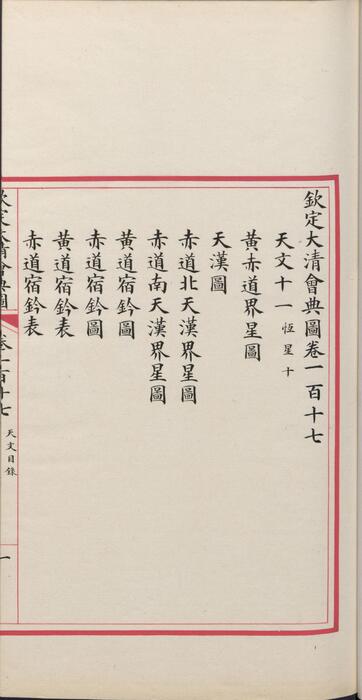 欽定大清會典圖卷一百十七
天文十一 恆星十
黃赤道界星圖
天漢圖
赤道北天漢界星圖
赤道南天漢界星圖
黃道宿鈐圖
赤道宿鈐圖
黃道宿鈐表
赤道宿鈐表
欽定大清會典圖 卷一百十七 天文目錄 一